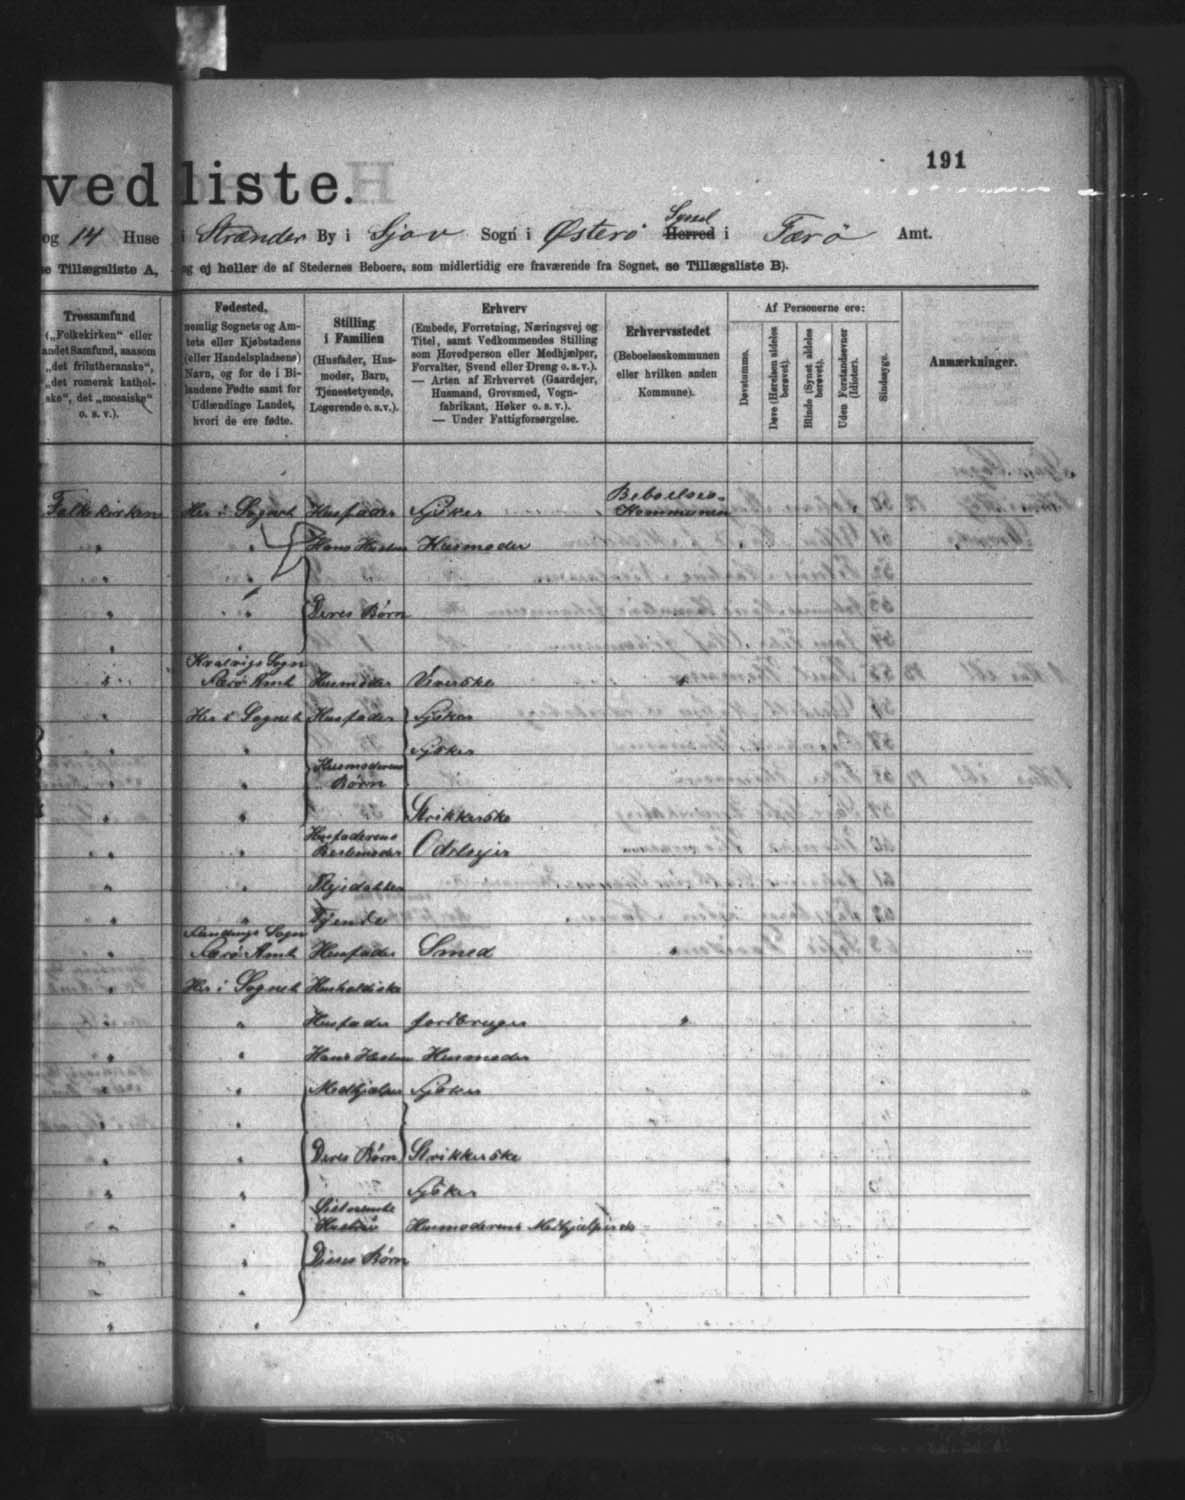 191
ved liste.
og 14 Huse i Strænder By i Sjov Sogn i Østerø Syssel Herred i Færø Amt.
se Tillægsliste A, og ej heller de af Stedernes Beboere, som midlertidig ere fraværende fra Sognet, se Tillægsliste B).
Trossamfund
(„Folkekirken“ eller
andet Samfund, saasom
„det frilutheranske“,
„det romersk kathol-
ske“, det „mosaiske“
o. s. v.).
Fødested,
nemlig Sognets og Am-
tets eller Kjøbstadens
(eller Handelspladsens)
Navn, og for de i Bi-
landene Fødte samt for
Udlændinge Landet,
hvori de ere fødte.
Stilling
i Familien
(Husfader, Hus-
moder, Barn,
Tjenestetyende,
Logerende o. s. v.).
Erhverv
(Embede, Forretning, Næringsvej og
Titel, samt Vedkommendes Stilling
som Hovedperson eller Medhjælper,
Forvalter, Svend eller Dreng o. s. v.).
— Arten af Erhvervet (Gaardejer,
Husmand, Grovsmed, Vogn-
fabrikant, Høker o. s. v.).
— Under Fattigforsørgelse.
Erhvervsstedet
(Beboelseskommunen
eller hvilken anden
Kommune).
Af Personerne ere:
Døvstumme.
Døve (Hørelsen aldeles
berøvet).
Blinde (Synet aldeles
berøvet).
Uden Forstandsevner
(Idioter).
Sindssyge.
Anmærkninger.
Folkekirken Her i Sognet Husfader Fisker Beboelses-
Kommunen
" " Hans Hustru Husmoder
" "
" " Deres Børn
"
Kvalvigs Sogn
" Færø Amt Husmoder Væverske "
" Her i Sognet Husfader Fisker
" " Fisker
" " Husmoderens
Børn
" " Strikkerske
" " Husfaderens
Bestemoder Odelsejer
" " Plejedatter
" " Tyende
Sandings Sogn
" Færø Amt Husfader Smed "
" Her i Sognet Husholderske
" " Husfader Jordbruger "
" " Hans Hustru Husmoder
" " Medhjælper Fisker
" "
" " Deres Børn Strikkerske
" " Fisker
" " Hustru Husmoderens Medhjælperske
" " Deres Børn
" "
" "